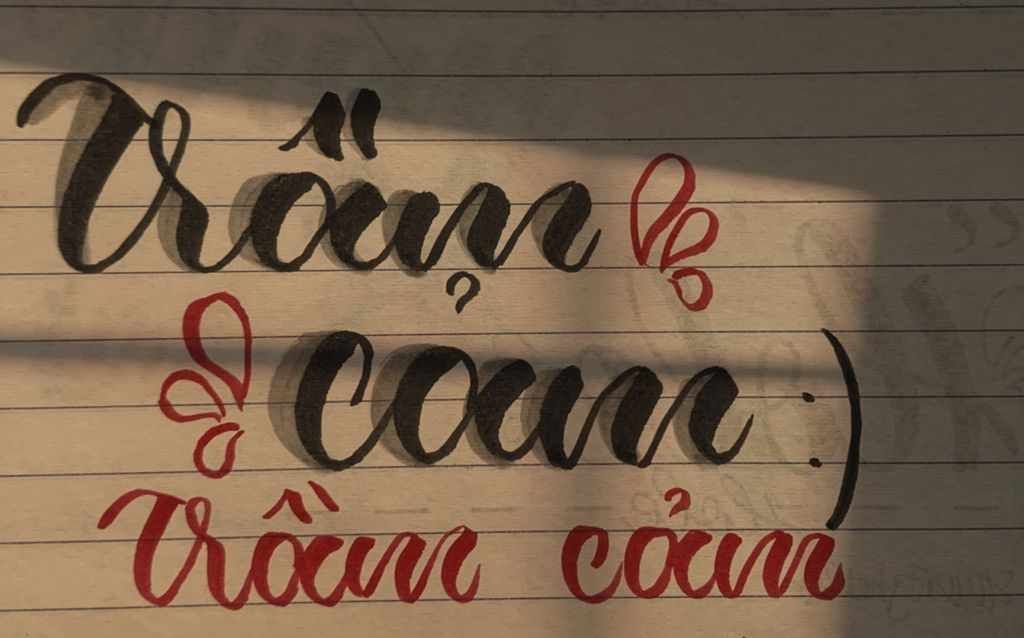 Trầm
cảm :)
Trầm cảm